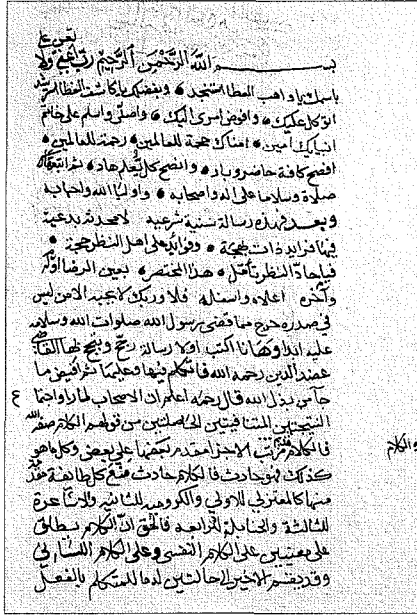 بسم الله الرحمن الرحيم رب
باسمك يا واهب العطا استنجد وبفضلك يا كاشف الغطا استرشد
اتوكل عليك وافوض امرى اليك واصلى واسلم على خاتم
انبيائك امين امنائك حجة للعالمين رحمة للعالمين
افصح كافة حاضر وباد وانصح كل هاد
صلاة وسلاما على اله واصحابه واوليا الله واحبابه
وبعد فهذه رسالة سنية شرعية لا محدثه بدعية
فيها فرايد ذات بهجة وفوايد على اهل النظر حجة
فيا حاد النظر تأمل هذا المختصر بعين الرضا اوله
وآخره اعلاه واسفله فلا وربك لا يجيد الا من ليس
فى صدره حرج مما قضى رسول الله صلوات الله وسلامه
عليه ابدا وها نا اكتب اولا رسالة القاضى
عضد الدين رحمه الله فاتكلم فيها وعليها
قال رحمه اعلم ان الاصحاب لما راوا
النتيجتين المتنافيتين من قولهم الكلام صفة الله
فالكلام مقدم بعضها على بعض وكل ما هو
والكلام
كذلك فهو حادث فالكلام حادث منع كل طائفة
منها كالمعتزلى للاولى والكراميه للثانيه والاشاعرة
للثالثة والحنابلة للرابعه فالحق ان الكلام يطلق
على معنيين على الكلام النفسى وعلى الكلام اللسانى
وقد يقسم الاخير الى حالتين للمتكلم بالفعل